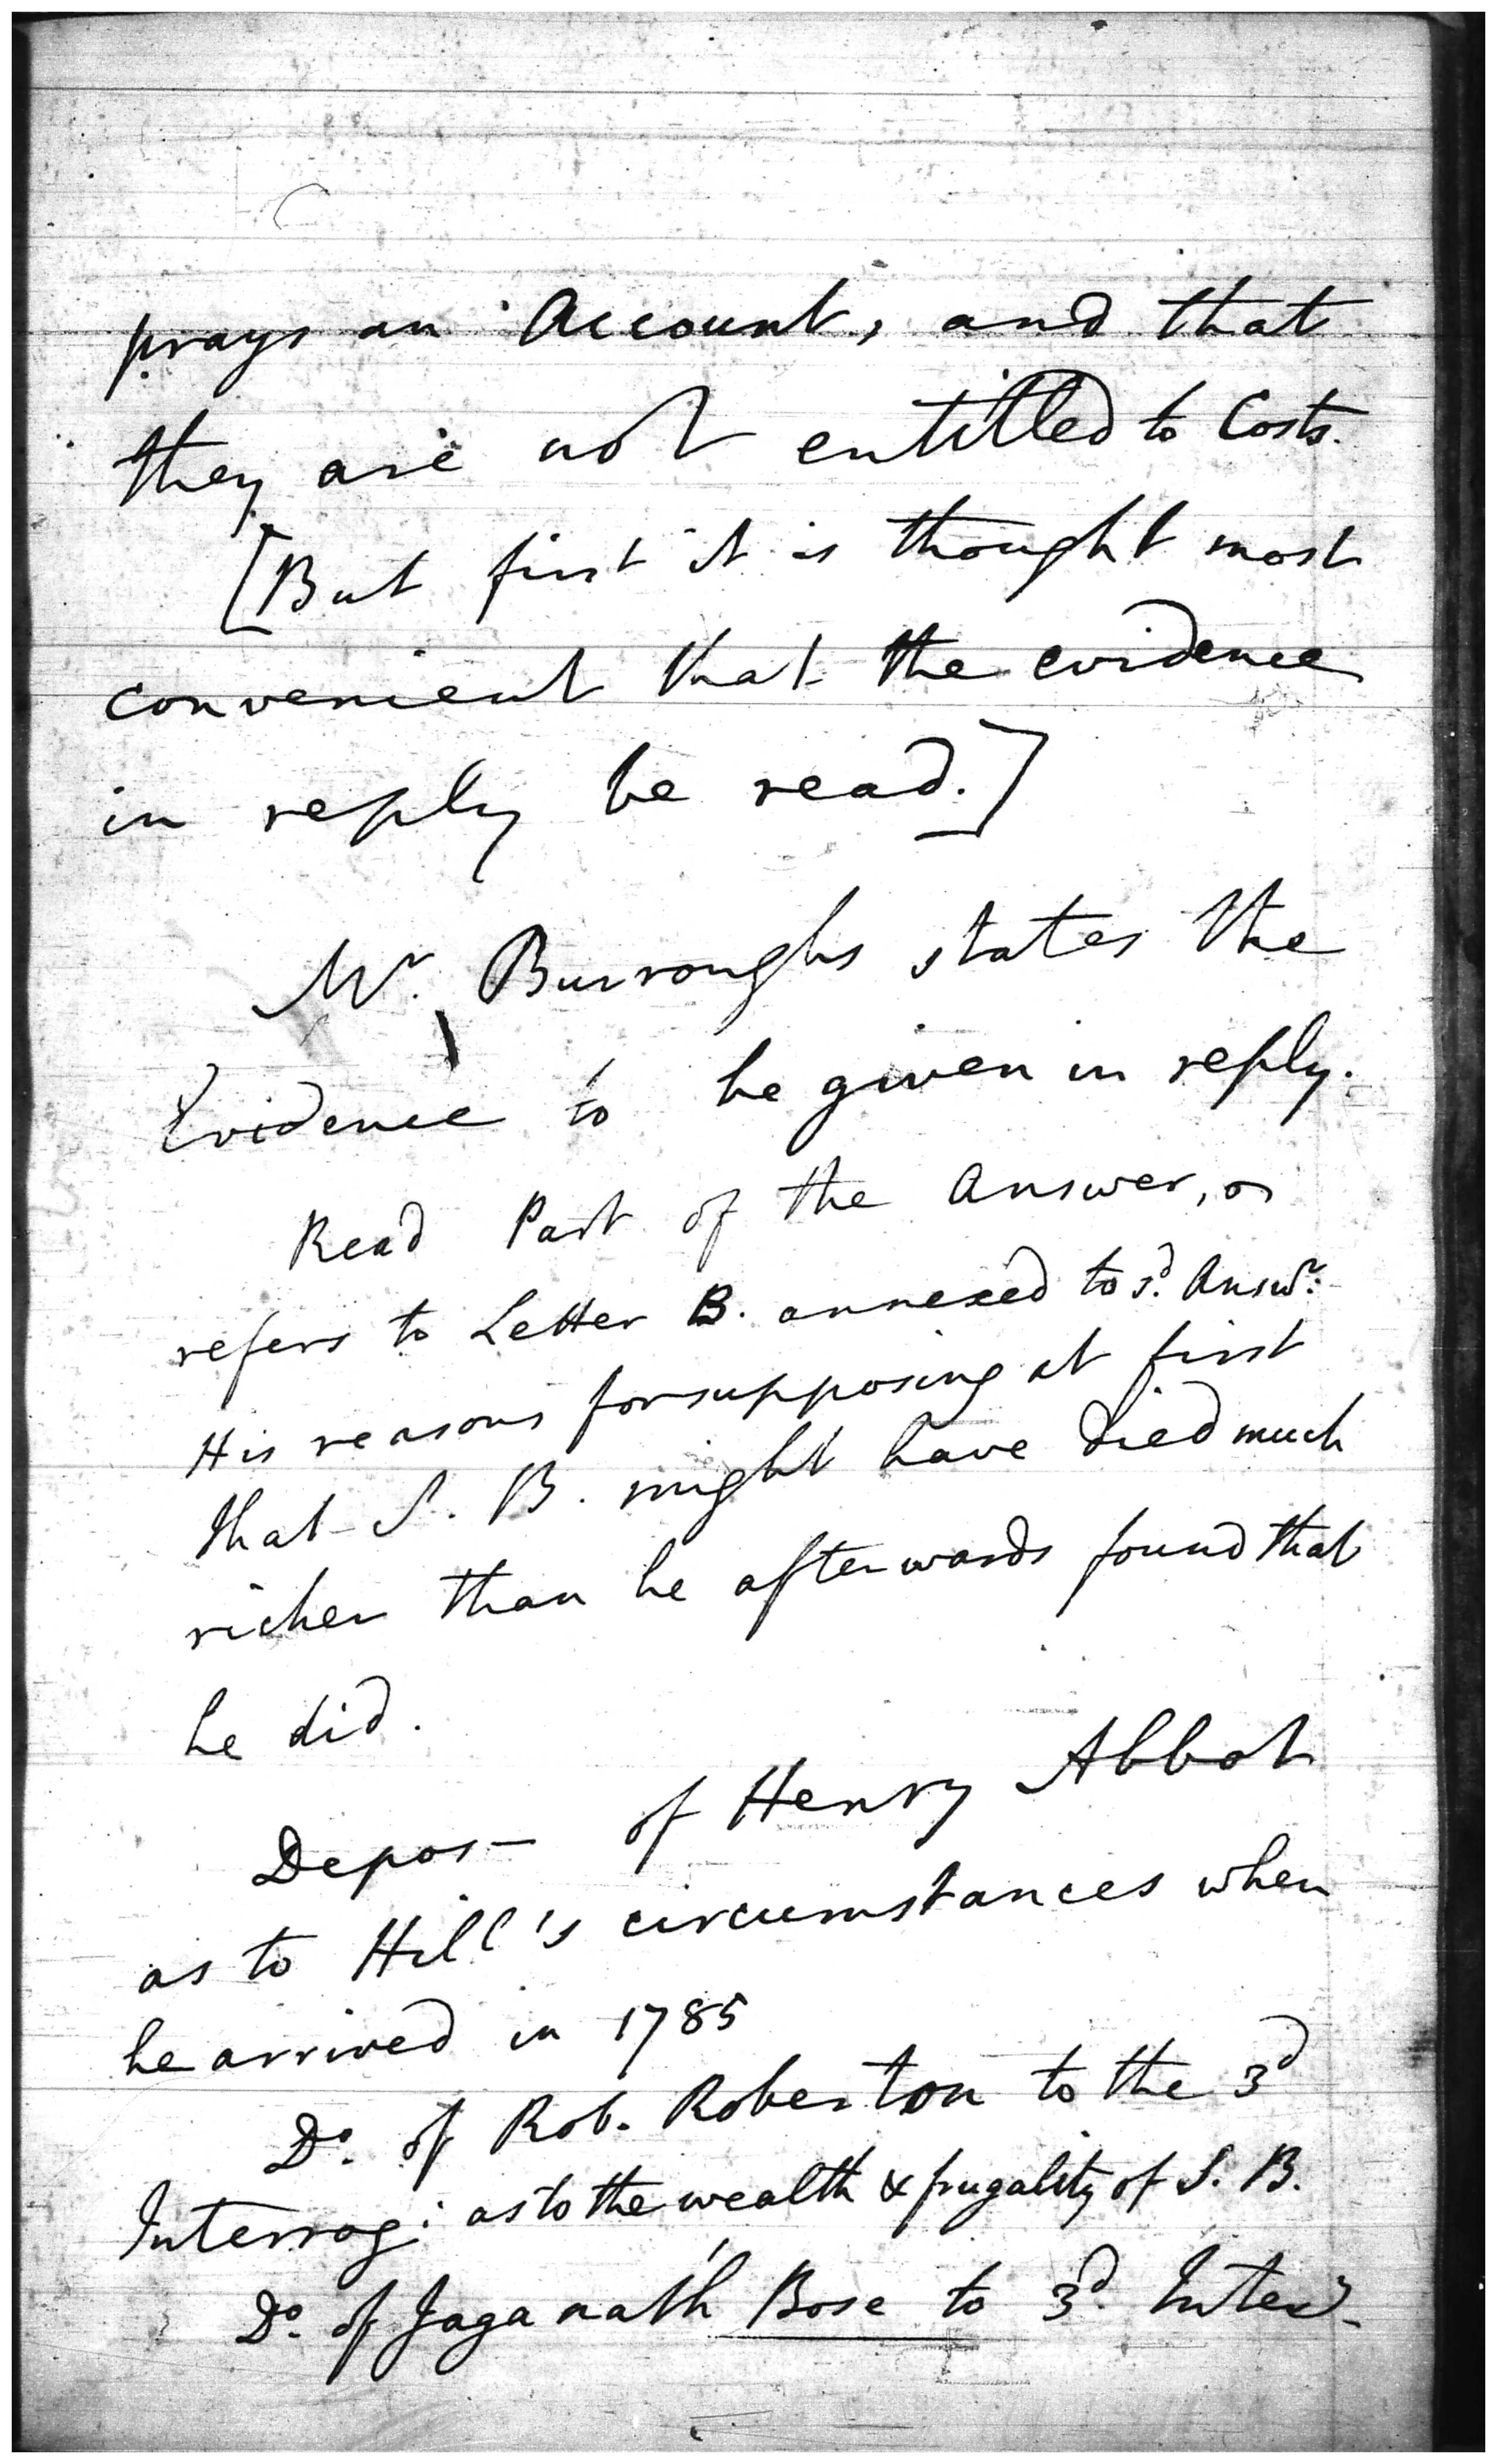 prays an Account, and that
they are not entitled to Costs.
[But first it is thought most
convenient that the evidence
in reply be read.]
Mr. Burroughs states the
Evidence to be given in reply.
Read Part of the Answer,
refers to Letter B. annexed to sd. Answr.
His reasons for supposing at first
that S. B. might have died much
richer than he afterwards found that
he did.
Depos— of Henry Abbot
as to Hill's circumstances when
he arrived in 1785
Do. of Rob. Roberton to the 3d
Interrog: as to the wealth & frugality of S. B.
Do. of Jaganath Bose to 3d.